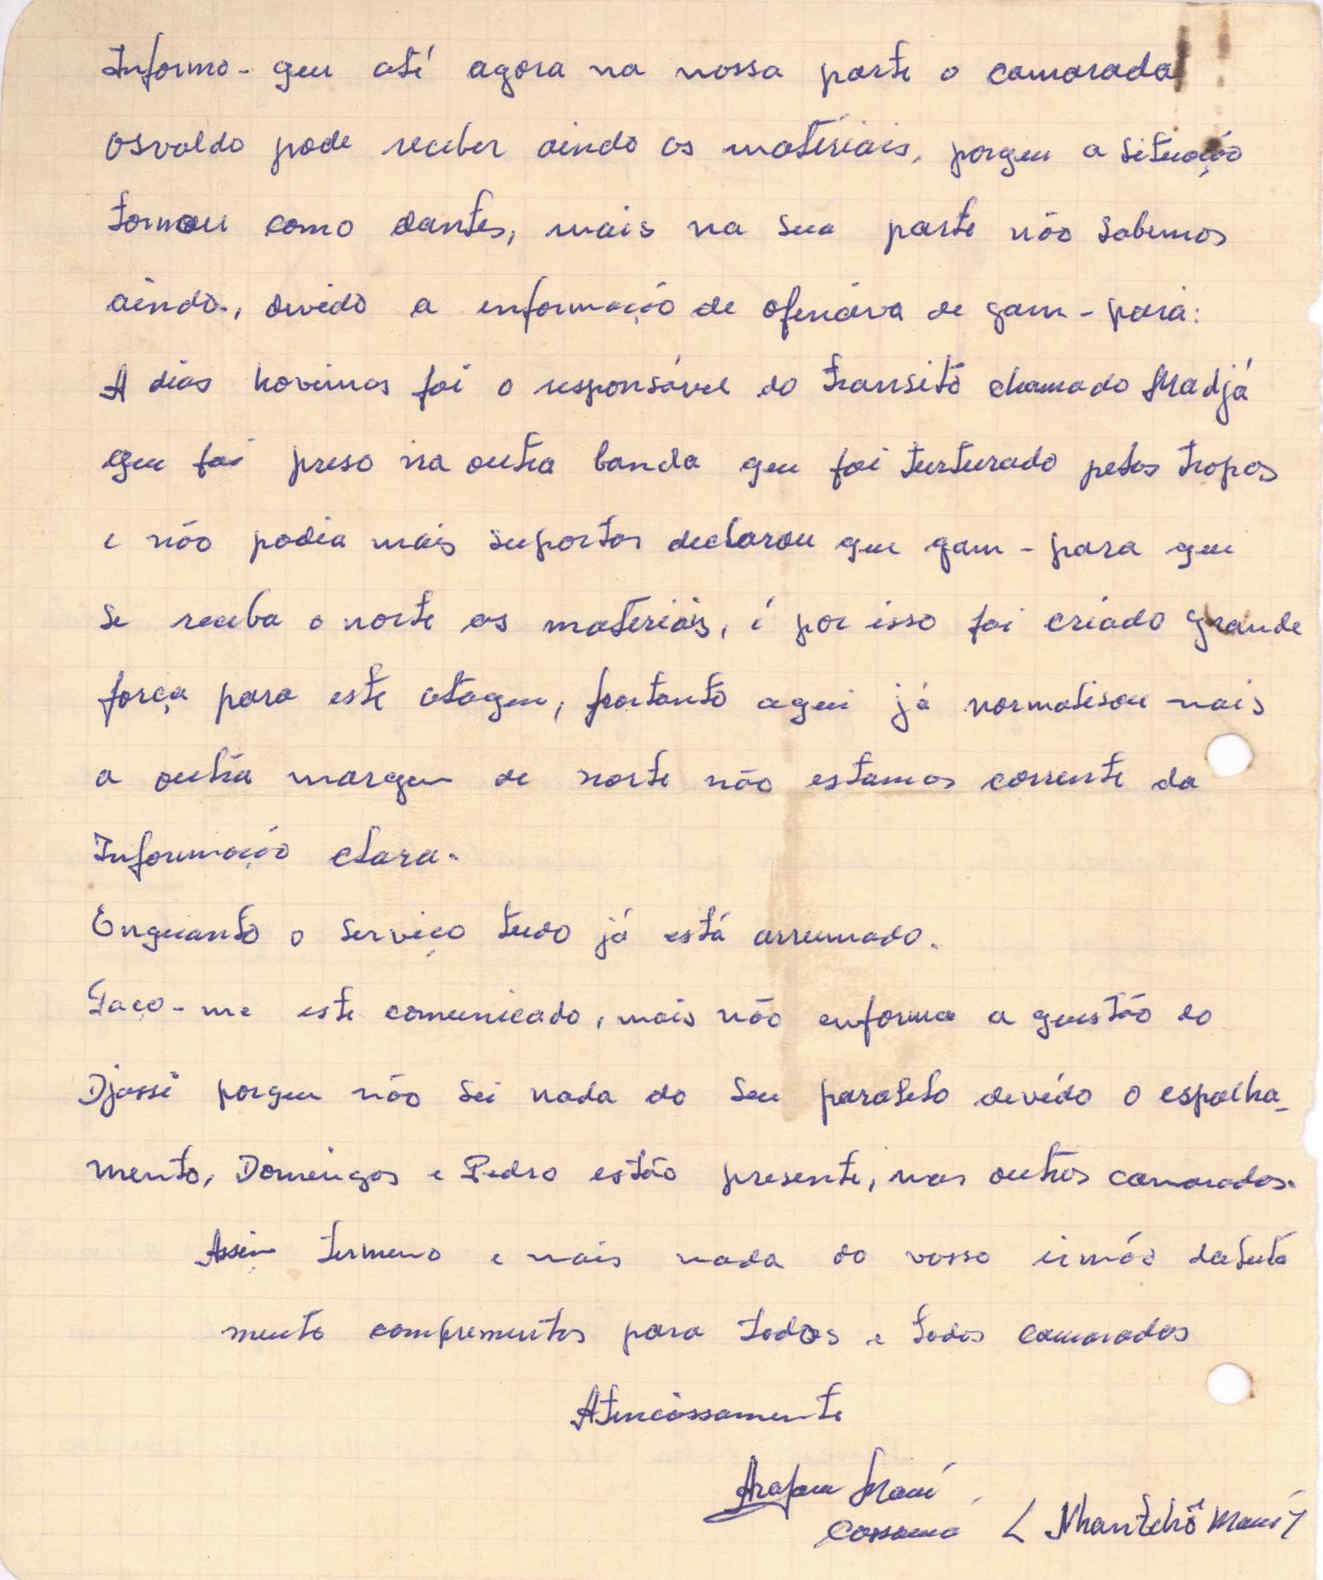 Informo- que até agora na nossa parte o camarada
Osvaldo pode receber aindo os matériais, porque a situação
tornou como dantes, mais na sua parte não sabemos
aindo., divido a enformação de ofensiva de gam-pará:
A dias houvimos foi o responsável do transitô chamado Madjá
que foi preso na outra banda que foi turturado pelos tropas
e não podia mais suportar declarou que gam-para que
se receba o norte os matériais, é por isso foi criado grande
força para este ataque, portanto aqui já normalisou mais
a outra margem de norte não estamos corrente da
Informação clara.
Enquanto o serviço tudo já está arrumado.
Faço-me este comunicado, mais não enforma a questão do
Djassi porque não sei nada do seu paralelo devédo o espalha-
mento, Domingos e Pedro estão presente, nas outros camarados.
Assim termeno e mais nada do vosso irmão daluta
muito comprementos para todos e todos camarados
Atenciossamente
Arafam Mané
Cossomá ( Nhantchô Mané)